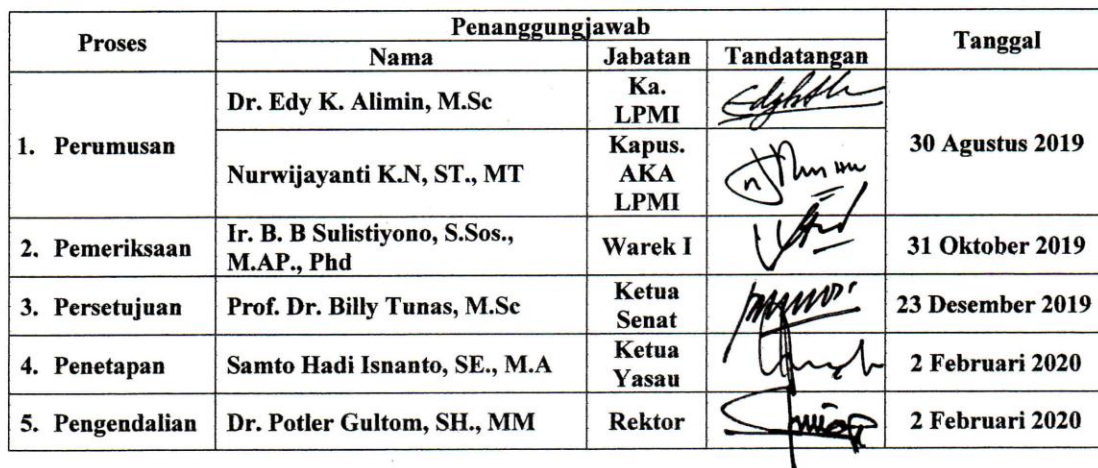 Proses Penanggungjawab Tanggal
Nama Jabatan Tandatangan
1. Perumusan Dr. Edy K. Alimin, M.Sc Ka. LPMI 30 Agustus 2019
Nurwijayanti K.N, ST., MT Kapus. AKA LPMI
2. Pemeriksaan Ir. B. B Sulistiyono, S.Sos., M.AP., Phd Warek I 31 Oktober 2019
3. Persetujuan Prof. Dr. Billy Tunas, M.Sc Ketua Senat 23 Desember 2019
4. Penetapan Samto Hadi Isnanto, SE., M.A Ketua Yasau 2 Februari 2020
5. Pengendalian Dr. Potler Gultom, SH., MM Rektor 2 Februari 2020